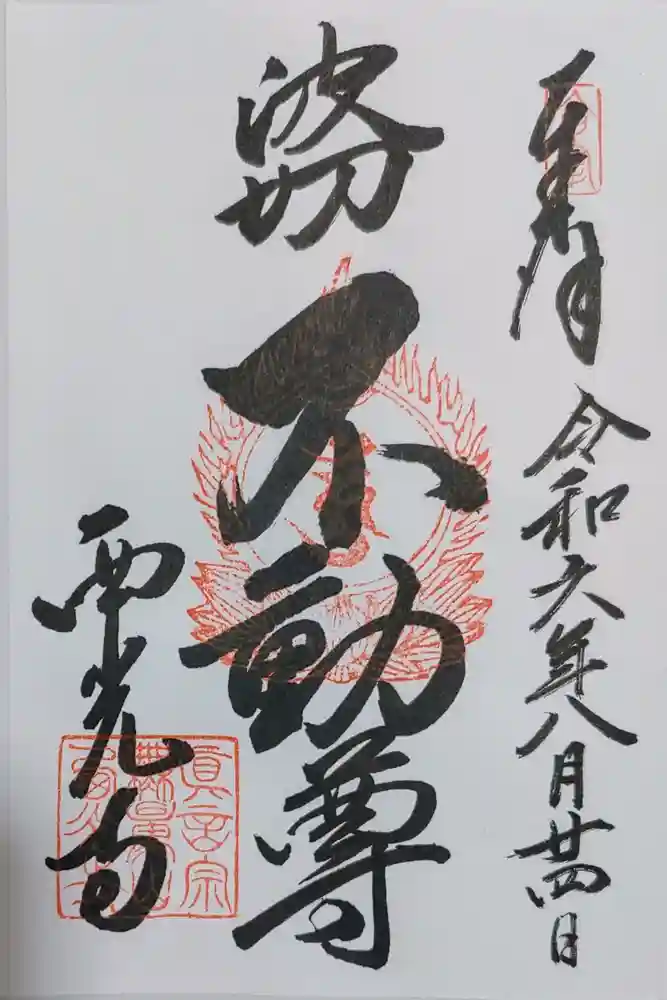 奉拝
令和六年八月廿四日
波切
不動尊
西光寺
眞言宗